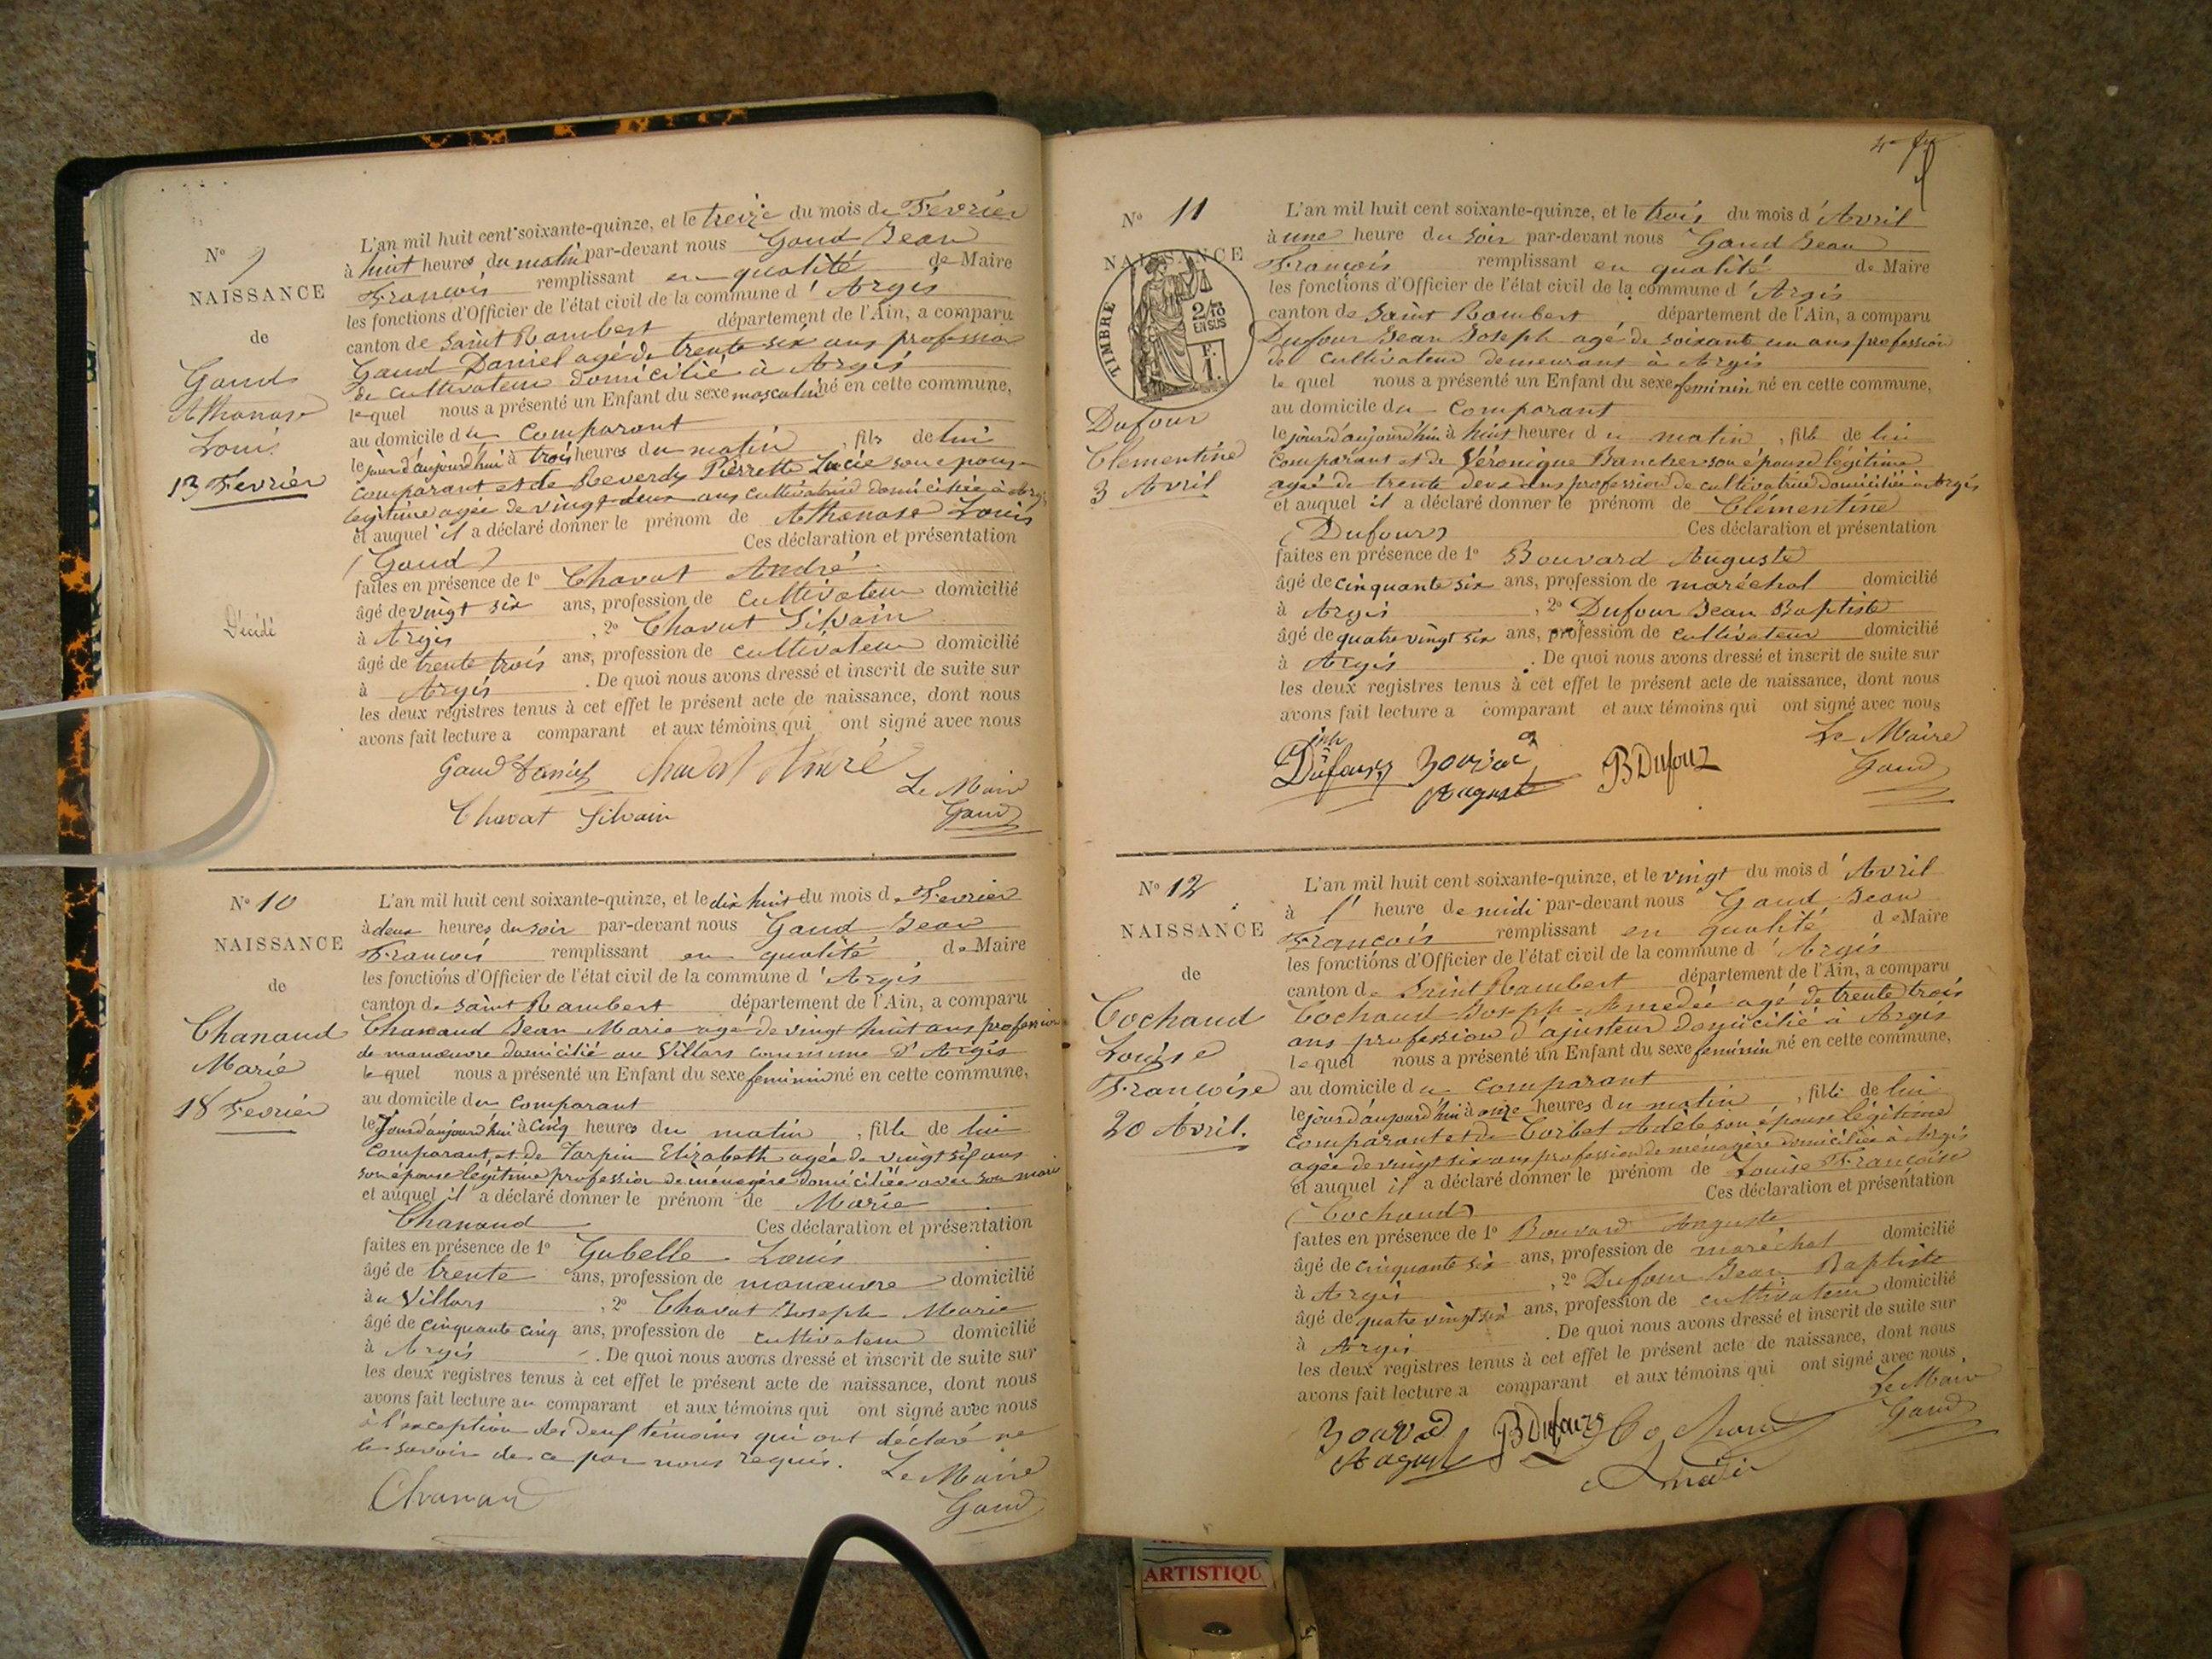 N° 9
NAISSANCE
de
Gaud
Athanase
Louis
13 Fevrier
Décédé
L'an mil huit cent soixante-quinze, et le treize du mois de Fevrier
à huit heures du matin par-devant nous Gaud Jean
François remplissant en qualité de Maire
les fonctions d'Officier de l'état civil de la commune d'Argis
canton de Saint Rambert département de l'Ain, a comparu
Gaud Daniel agé de trente six ans profession
de cultivateur domicilié à Argis
lequel nous a présenté un Enfant du sexe masculin né en cette commune,
au domicile du comparant
le jour d'aujourd'hui à trois heures du matin, fils de lui
comparant et de Reverdy Pierrette Lucie son epouse
legitime agée de vingt deux ans cultivatrice domiciliée à Argis
et auquel il a déclaré donner le prénom de Athanase Louis
(Gaud) Ces déclaration et présentation
faites en présence de 1° Chavat André
âgé de vingt six ans, profession de cultivateur domicilié
à Argis, 2° Chavat Silvain
âgé de trente trois ans, profession de cultivateur domicilié
à Argis. De quoi nous avons dressé et inscrit de suite sur
les deux registres tenus à cet effet le présent acte de naissance, dont nous
avons fait lecture a comparant et aux témoins qui ont signé avec nous
Gaud Daniel Chavat André
Le Maire
Chavat Silvain
Gaud
N° 10
NAISSANCE
de
Chanaud
Marie
18 Fevrier
L'an mil huit cent soixante-quinze, et le dix huit du mois de Fevrier
à deux heures du soir par-devant nous Gaud Jean
François remplissant en qualité de Maire
les fonctions d'Officier de l'état civil de la commune d'Argis
canton de Saint Rambert département de l'Ain, a comparu
Chanaud Jean Marie agé de vingt huit ans profession
de manœuvre domicilié au Villars commune d'Argis
lequel nous a présenté un Enfant du sexe feminin né en cette commune,
au domicile du comparant
le jour d'aujourd'hui à cinq heures du matin, fille de lui
comparant et de Tarpin Elizabeth agée de vingt six ans
son épouse légitime profession de ménagère domiciliée avec son mari
et auquel il a déclaré donner le prénom de Marie
Chanaud Ces déclaration et présentation
faites en présence de 1° Gubelle Louis
âgé de trente ans, profession de manœuvre domicilié
au Villars, 2° Chavat Joseph Marie
âgé de cinquante cinq ans, profession de cultivateur domicilié
à Argis. De quoi nous avons dressé et inscrit de suite sur
les deux registres tenus à cet effet le présent acte de naissance, dont nous
avons fait lecture au comparant et aux témoins qui ont signé avec nous
à l'exception des deux témoins qui ont déclaré ne
le savoir de ce par nous requis. Le Maire
Chanaud Gaud
4e
N° 11
NAISSANCE
TIMBRE
2/10
EN SUS
F.
1.
Dufour
Clementine
3 Avril
L'an mil huit cent soixante-quinze, et le trois du mois d'Avril
à une heure du soir par-devant nous Gaud Jean
François remplissant en qualité de Maire
les fonctions d'Officier de l'état civil de la commune d'Argis
canton de Saint Rambert département de l'Ain, a comparu
Dufour Jean Joseph agé de soixante un ans profession
de cultivateur demeurant à Argis
lequel nous a présenté un Enfant du sexe feminin né en cette commune,
au domicile du comparant
le jour d'aujourd'hui à huit heures du matin, fille de lui
comparant et de Véronique Bancher son épouse légitime
agée de trente deux ans profession de cultivatrice domiciliée à Argis
et auquel il a déclaré donner le prénom de Clémentine
(Dufour) Ces déclaration et présentation
faites en présence de 1° Bouvard Auguste
âgé de cinquante six ans, profession de maréchal domicilié
à Argis, 2° Dufour Jean Baptiste
âgé de quatre vingt six ans, profession de cultivateur domicilié
à Argis. De quoi nous avons dressé et inscrit de suite sur
les deux registres tenus à cet effet le présent acte de naissance, dont nous
avons fait lecture a comparant et aux témoins qui ont signé avec nous
Dufour Bouvard Auguste B Dufour
Le Maire
Gaud
N° 12
NAISSANCE
de
Cochaud
Louise
Francoise
20 Avril.
L'an mil huit cent soixante-quinze, et le vingt du mois d'Avril
à l'heure de midi par-devant nous Gaud Jean
François remplissant en qualité de Maire
les fonctions d'Officier de l'état civil de la commune d'Argis
canton de Saint Rambert département de l'Ain, a comparu
Cochaud Joseph Amedée agé de trente trois
ans profession d'ajusteur domicilié à Argis
lequel nous a présenté un Enfant du sexe feminin né en cette commune,
au domicile du comparant
le jour d'aujourd'hui à onze heures du matin, fille de lui
comparant et de Corbet Adèle son épouse légitime
agée de vingt six ans profession de ménagère domiciliée à Argis
et auquel il a déclaré donner le prénom de Louise Francoise
(Cochaud) Ces déclaration et présentation
faites en présence de 1° Bouvard Auguste
âgé de cinquante six ans, profession de maréchal domicilié
à Argis, 2° Dufour Jean Baptiste
âgé de quatre vingt six ans, profession de cultivateur domicilié
à Argis. De quoi nous avons dressé et inscrit de suite sur
les deux registres tenus à cet effet le présent acte de naissance, dont nous
avons fait lecture a comparant et aux témoins qui ont signé avec nous
Le Maire
Gaud
Bouvard August B Dufour Cochaud
ARTISTIQU